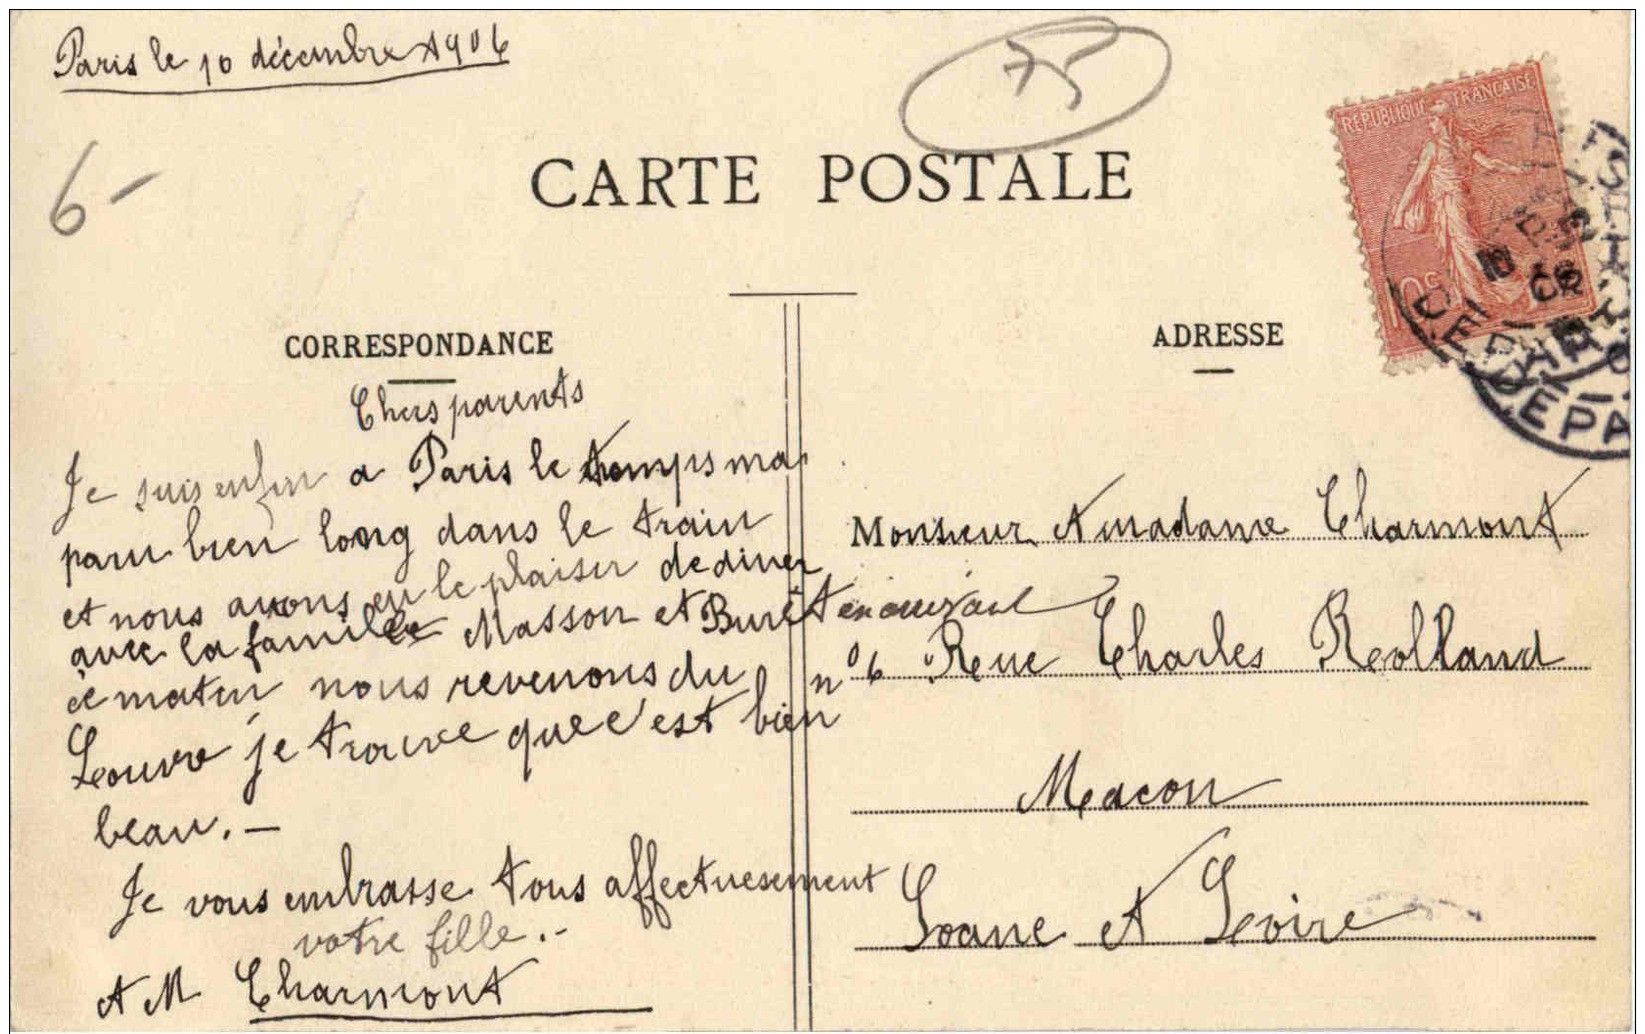 Paris le 10 décembre 1906
75
6-
CARTE POSTALE
REPUBLIQUE FRANÇAISE
10c
DEPART
CORRESPONDANCE
Chers parents
Je suis enfin a Paris le temps ma
paru bien long dans le train
et nous avons eu le plaisir de diner
avec la famille Masson et Buret
ce matin nous revenons du
Louvre je trouve que c'est bien
beau.-
Je vous embrasse tous affectuesement
votre fille.-
A M Charmont
ADRESSE
Monsieur et madame Charmont
n° 6 Rue Charles Rolland
Macon
Soane et Loire